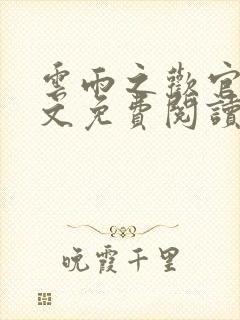 雲雨之歡官
文免費閱讀
晚霞千里